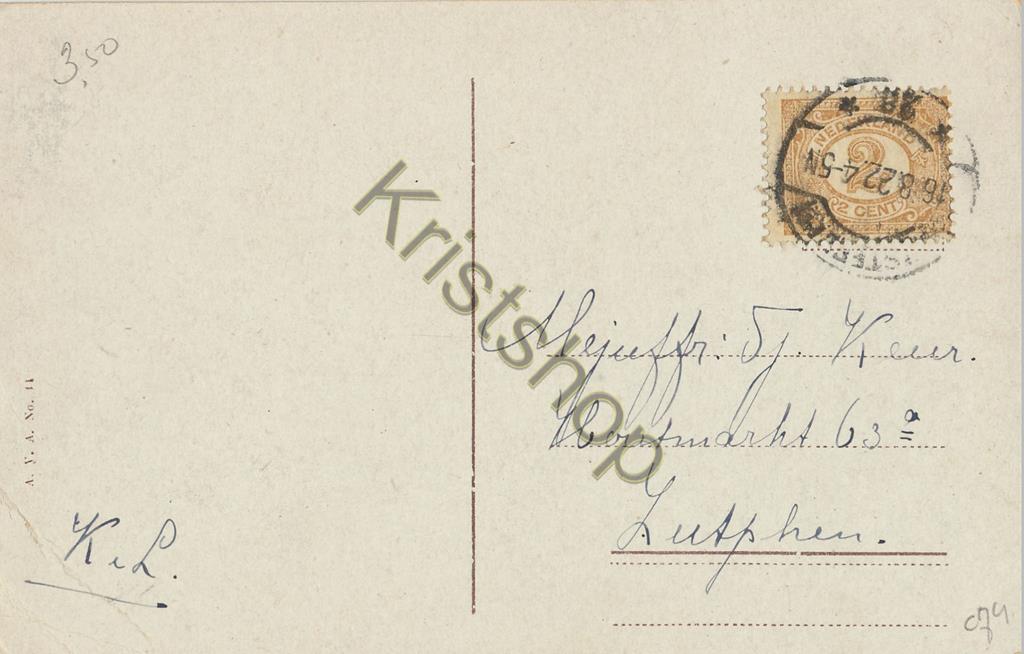 3,50
NEDERLAND
2
2 CENT
16.8.22 4-5N
Kristshop
Mejuffr: Tj. Keur.
Houtmarkt 63ª
Zutphen.
A. V. A. No. 11
K e L.
c74